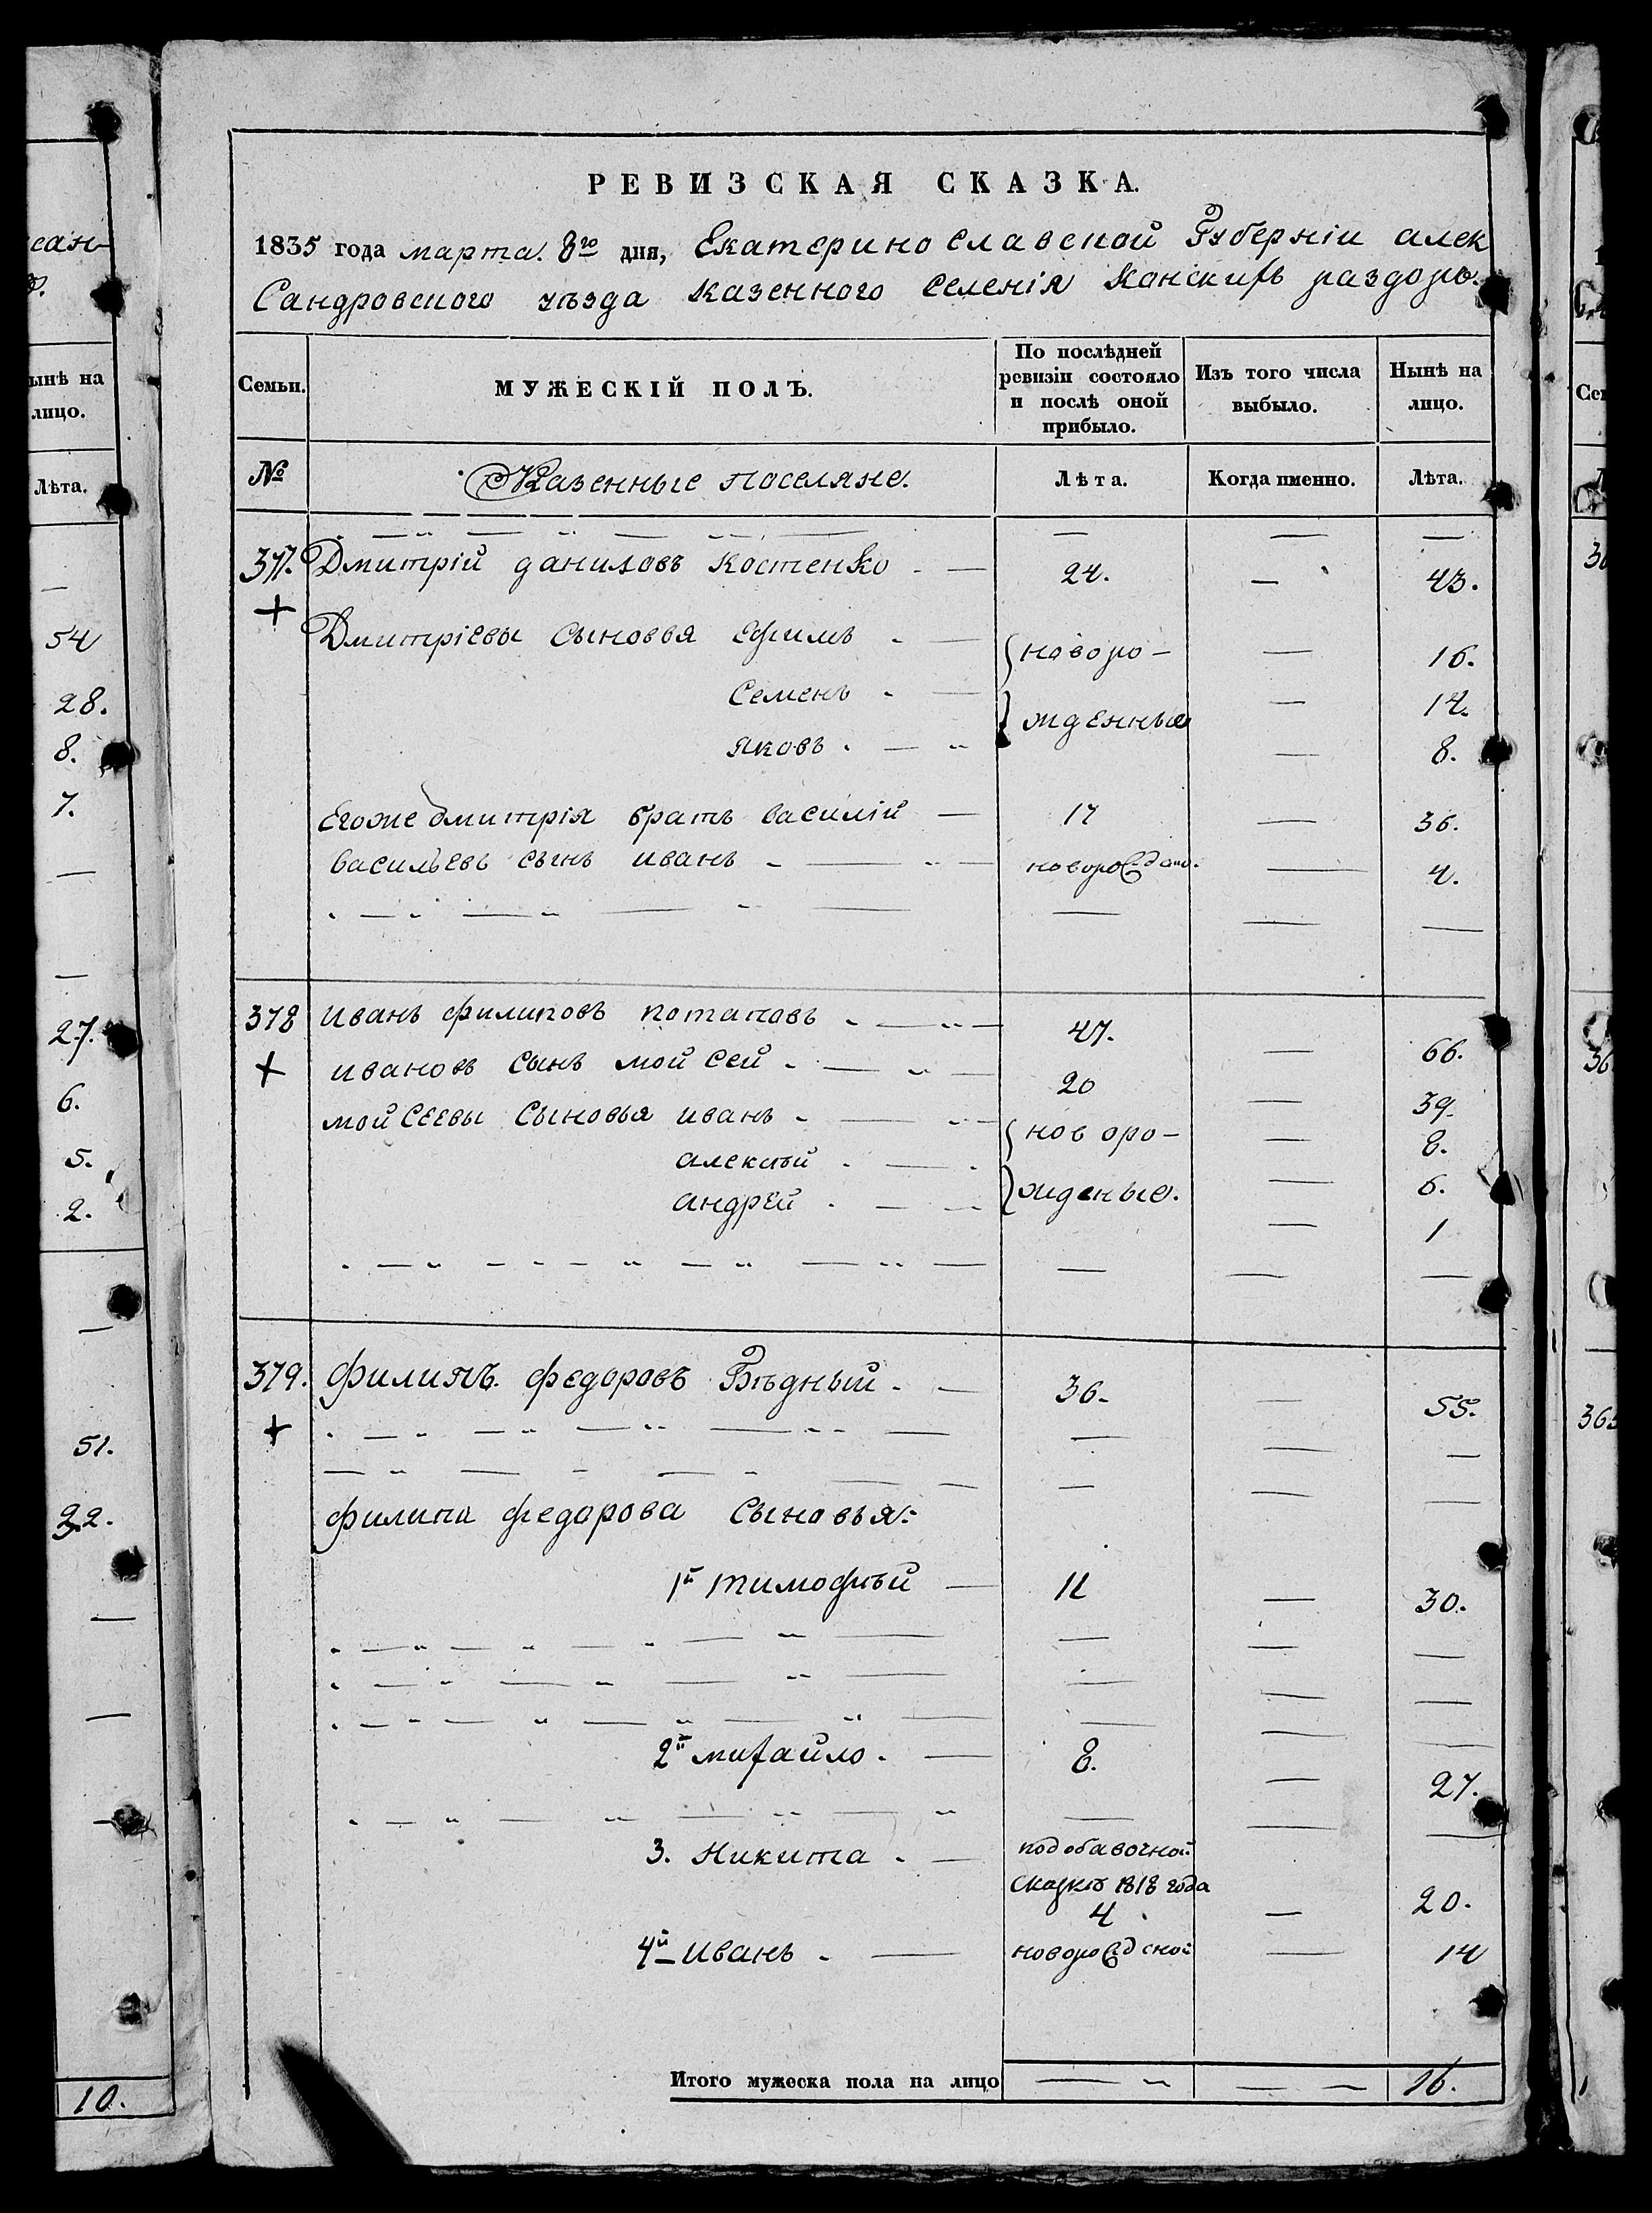 еан
ынѣ на
лицо.
Лѣта.
54
28.
8.
7.
27.
6.
5.
2.
51.
22.
10.
РЕВИЗСКАЯ СКАЗКА.
1835 года марта. 8го дня, Екатеринославской Губерніи алек
Сандровского уѣзда казенного селенія Конскихъ раздоръ.
Семьи.
МУЖЕСКІЙ ПОЛЪ.
По послѣдней
ревизіи состояло
и послѣ оной
прибыло.
Изъ того числа
выбыло.
Нынѣ на
лицо.
№ Казенные поселяне. Лѣта. Когда именно. Лѣта.
377. Дмитрій даниловъ Костенко - — 24. — 43.
+
Дмитріевы сыновья Ефимъ - — новоро- — 16.
Семенъ - — — 14.
яковъ. — жденные — 8.
Егоже дмитрія братъ василій — 17 — 36.
васильевъ сынъ иванъ - — новорожден. — 4.
378 иванъ филиповъ потаповъ - — 47. — 66.
+ ивановъ сынъ мойсей - — 20 — 39.
мойсеевы сыновья иванъ - — новоро- — 8.
алексѣй - — — 6.
андрей - — жденые. — 1
379. филипъ. федоровъ Бѣдный - — 36. — 55.
+
филипа федорова сыновья:
1й тимофѣй — 11 — 30.
2й михайло. — 8. — 27.
3. никита - — подобавочной
сказкѣ 1818 года
4 — 20.
4й иванъ - — новорожденой — 14
Итого мужеска пола на лицо — — 16.